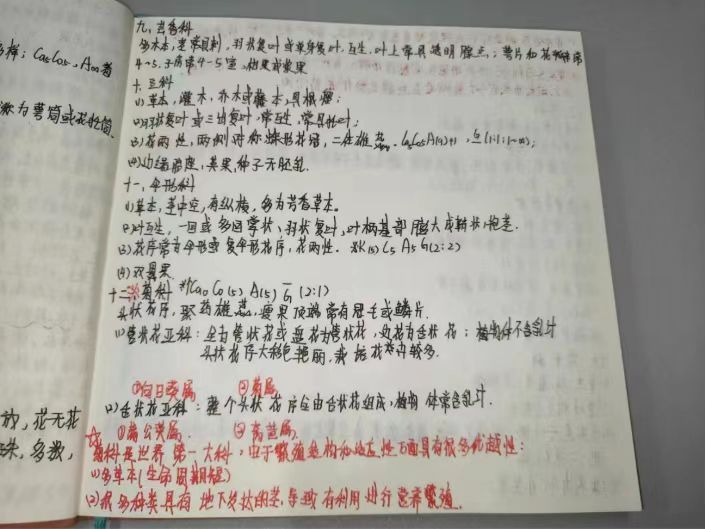 多样; Ca5Co5, A∞着
为萼筒或花托筒.
放, 花无花
珠, 多数,
九、芸香科
多木本, 茎常具刺, 羽状复叶或单身复叶, 互生, 叶上常具透明腺点; 萼片和花瓣常
4~5, 子房常4~5室, 柑果或浆果
十、豆科
(1)草本, 灌木, 乔木或藤本, 具根瘤;
(2)羽状复叶或三出复叶, 常互生, 常具托叶;
(3)花两性, 两侧对称, 蝶形花冠, 二体雄蕊. Ca5Co5A(9)+1, G(1:1:1~∞);
(4)边缘胎座, 荚果, 种子无胚乳.
十一、伞形科
(1)草本, 茎中空, 有纵棱, 多为芳香草本。
(2)叶互生, 一回或多回掌状、羽状复叶, 叶柄基部膨大成鞘状, 抱茎.
(3)花序常为伞形或复伞形花序, 花两性. *K(5)C5 A5 G(2:2)
(4)双悬果.
十二、菊科 *↑Ca0 Co(5) A(5) G(2:1)
头状花序, 聚药雄蕊, 瘦果顶端常有冠毛或鳞片.
(1)管状花亚科: 全为管状花或盘花为管状花, 边花为舌状花; 植物体不含乳汁
头状花序大, 艳丽, 栽培花卉较多.
①向日葵属 ②菊属
(2)舌状花亚科: 整个头状花序全由舌状花组成, 植物体常含乳汁.
①蒲公英属. ②莴苣属.
☆ 菊科是世界第一大科, 由于繁殖结构和适应性方面具有很多优越性:
(1)多草本(生命周期短)
(2)很多种类具有地下发达的茎, 导致有利用进行营养繁殖.